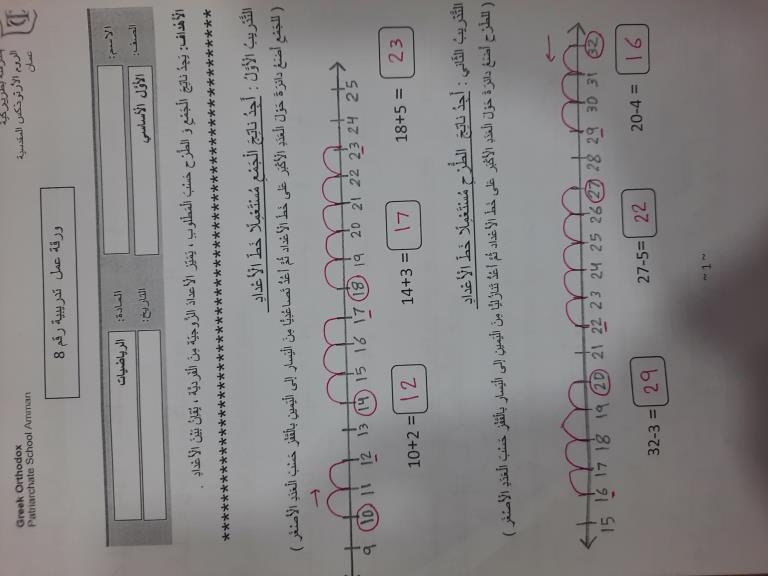 Greek Orthodox
Patriarchate School Amman
الروم الأرثوذكس المقدسية
عمان
ورقة عمل تدريبية رقم 8
الاسم:
المادة: الرياضيات
الصف: الأول الأساسي
التاريخ:
الأهداف: يَجِدُ ناتِجَ الجَمْعِ وَ الطَّرْحِ حَسَبَ المَطْلوبِ ، يُمَيِّزُ الأعدادَ الزَّوجِيَّةَ مِنَ الفَرديَّةِ ، يُقارِنُ بَيْنَ الأعْدادِ .
********************************************
التَّدْريبُ الأوَّلُ : أَجِدُ ناتِجَ الجَمْعِ مُسْتَعْمِلًا خَطَّ الأعْدادِ
( لِلجَمْعِ أَضَعُ دائِرَةً حَوْلَ العَدَدِ الأكْبَرِ على خَطِّ الأعْدادِ ثُمَّ أعُدُّ تَصاعُدِيًّا مِنَ اليَسارِ إلى اليَمينِ بِالقَفْزِ حَسَبَ العَدَدِ الأصْغَرِ )
9 10 11 12 13 14 15 16 17 18 19 20 21 22 23 24 25
10+2 = 12 14+3 = 17 18+5 = 23
التَّدْريبُ الثّاني : أَجِدُ ناتِجَ الطَّرْحِ مُسْتَعْمِلًا خَطَّ الأعْدادِ
( لِلطَّرْحِ أَضَعُ دائِرَةً حَوْلَ العَدَدِ الأكْبَرِ على خَطِّ الأعْدادِ ثُمَّ أعُدُّ تَنازُلِيًّا مِنَ اليَمينِ إلى اليَسارِ بِالقَفْزِ حَسَبَ العَدَدِ الأصْغَرِ )
15 16 17 18 19 20 21 22 23 24 25 26 27 28 29 30 31 32
32-3 = 29 27-5= 22 20-4 = 16
~ 1 ~